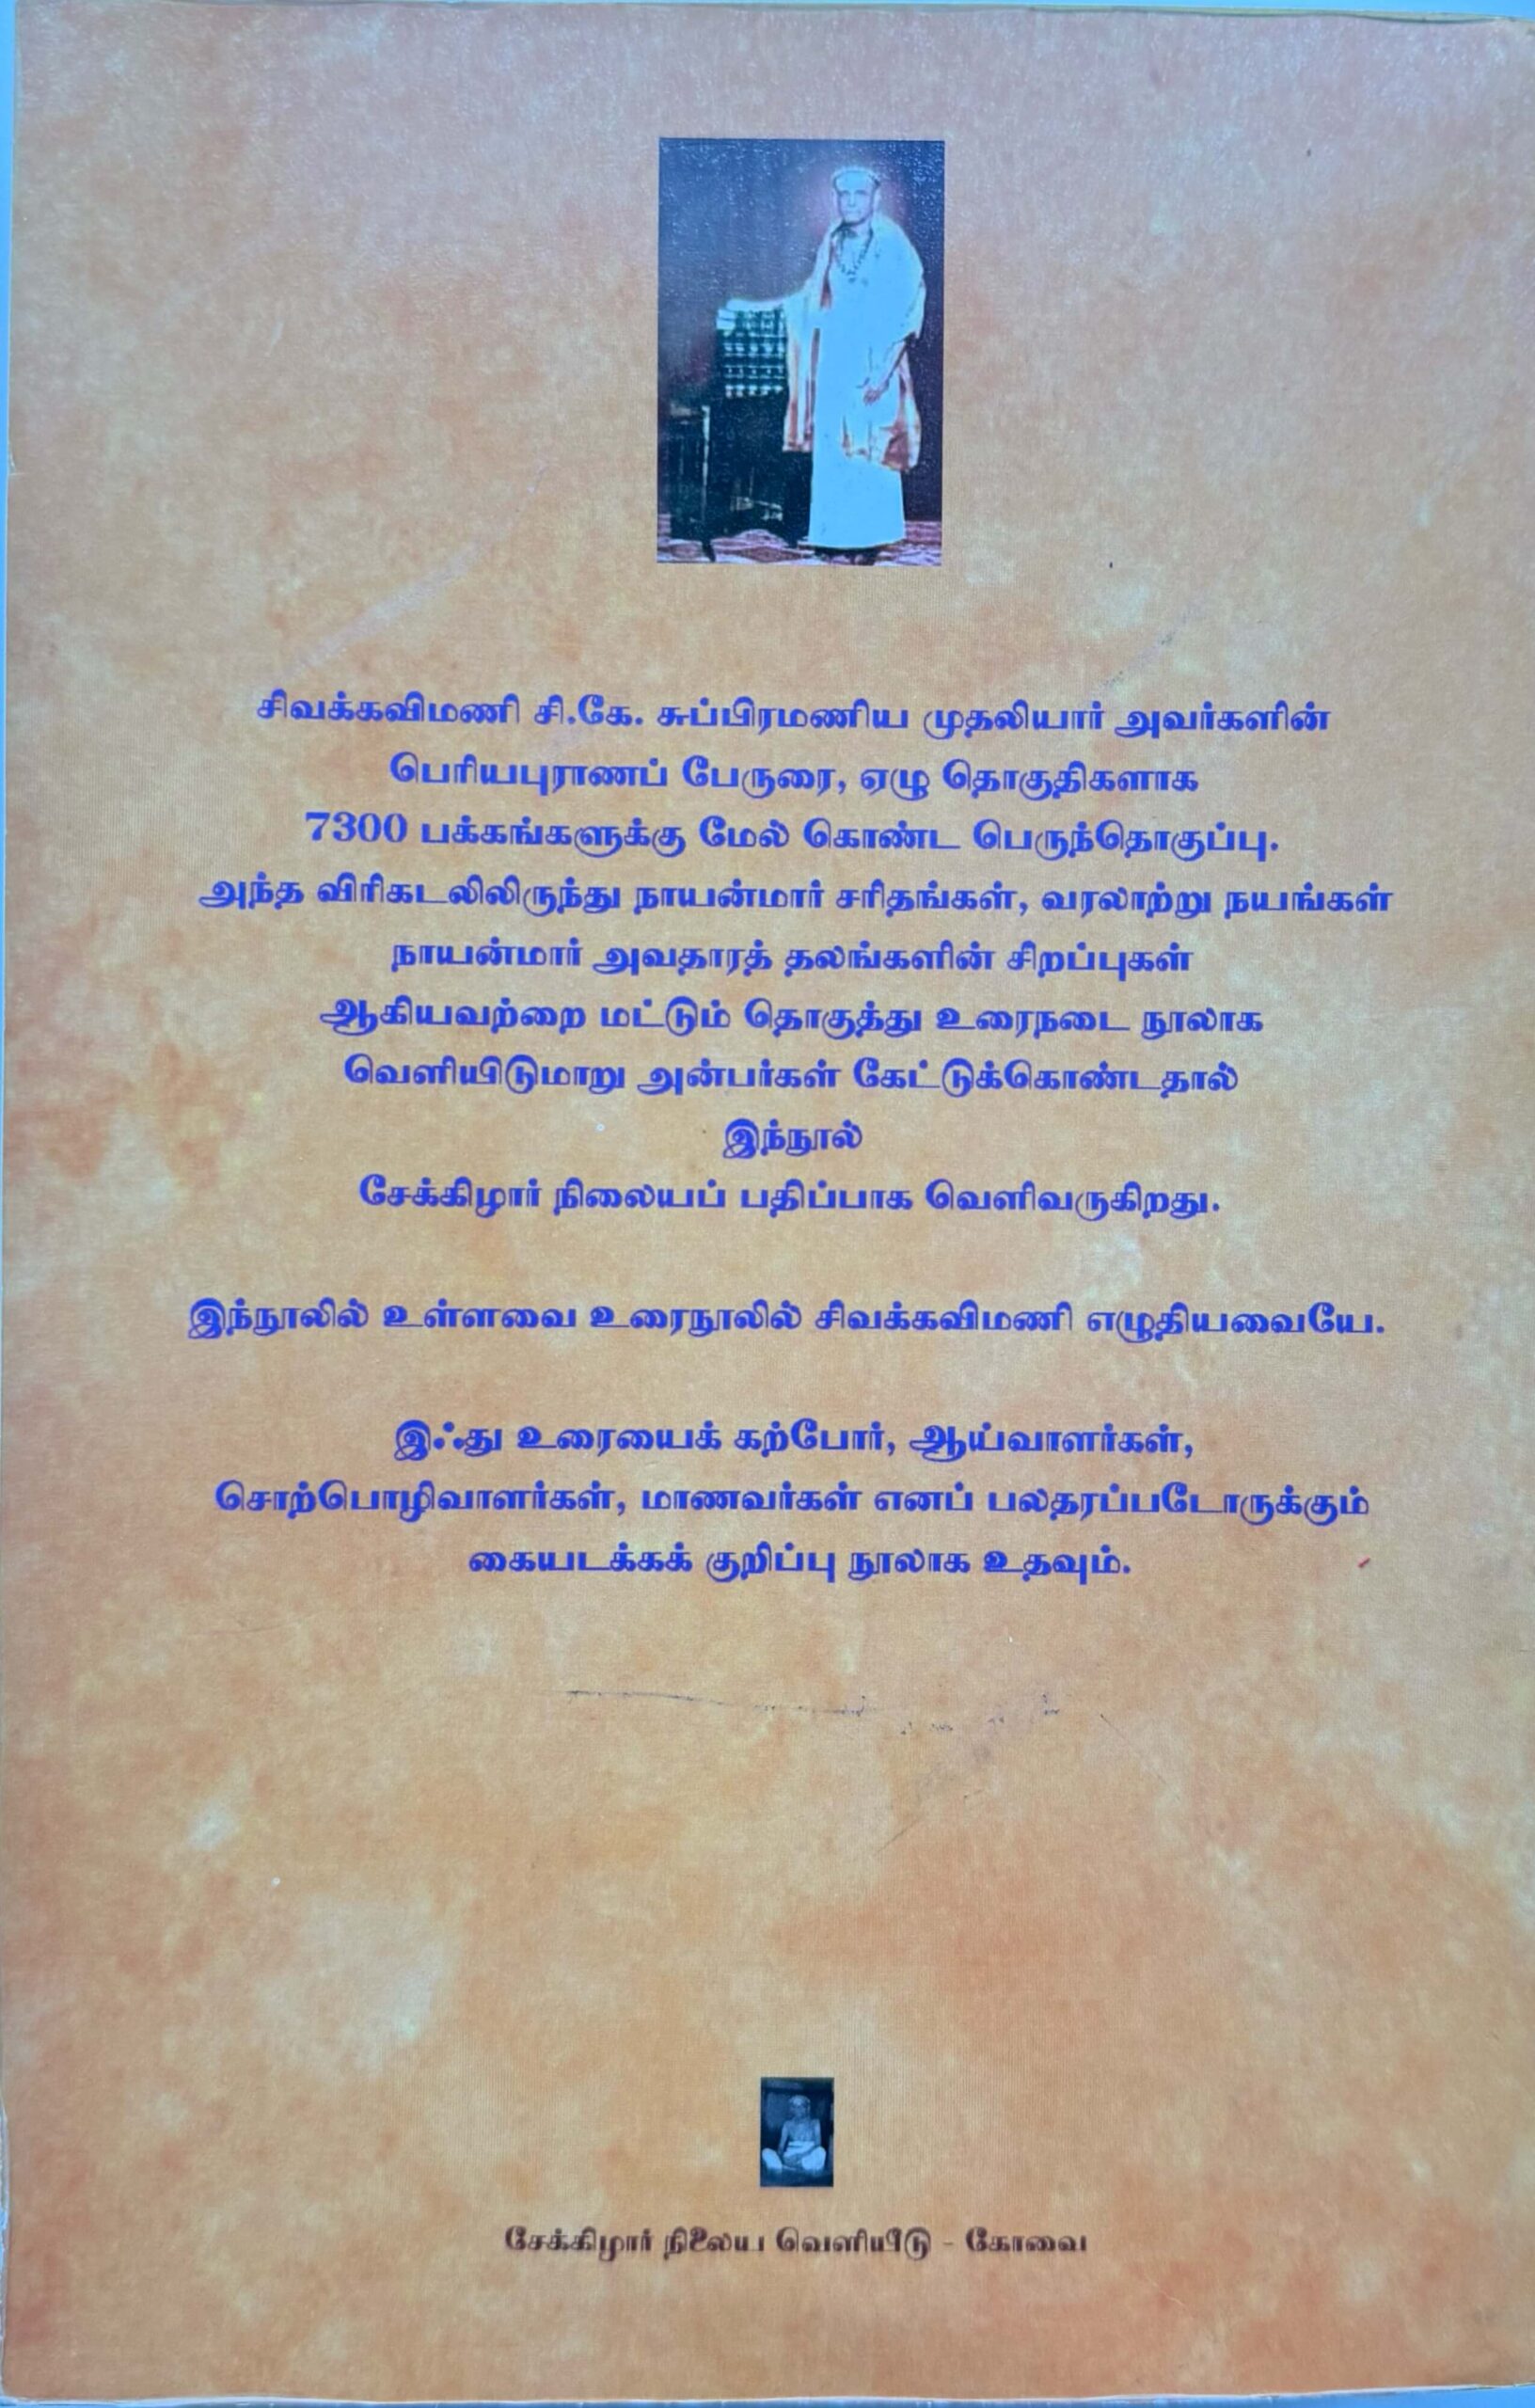 சிவக்கவிமணி சி.கே. சுப்பிரமணிய முதலியார் அவர்களின்
பெரியபுராணப் பேருரை, ஏழு தொகுதிகளாக
7300 பக்கங்களுக்கு மேல் கொண்ட பெருந்தொகுப்பு.
அந்த விரிகடலிலிருந்து நாயன்மார் சரிதங்கள், வரலாற்று நயங்கள்
நாயன்மார் அவதாரத் தலங்களின் சிறப்புகள்
ஆகியவற்றை மட்டும் தொகுத்து உரைநடை நூலாக
வெளியிடுமாறு அன்பர்கள் கேட்டுக்கொண்டதால்
இந்நூல்
சேக்கிழார் நிலையப் பதிப்பாக வெளிவருகிறது.
இந்நூலில் உள்ளவை உரைநூலில் சிவக்கவிமணி எழுதியவையே.
இஃது உரையைக் கற்போர், ஆய்வாளர்கள்,
சொற்பொழிவாளர்கள், மாணவர்கள் எனப் பலதரப்படோருக்கும்
கையடக்கக் குறிப்பு நூலாக உதவும்.
சேக்கிழார் நிலைய வெளியீடு - கோவை